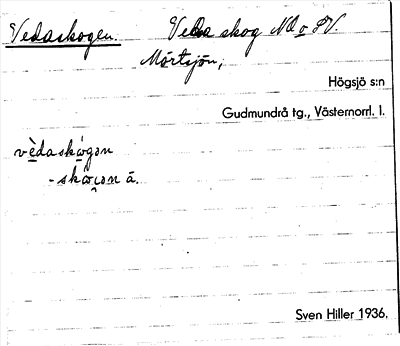 Vedaskogen. Veda skog NO o SV.
Mörtsjön,
Högsjö s:n
Gudmundrå tg., Västernorrl. l.
vèdaskógən
- skó̤ɩən ä.
Sven Hiller 1936.